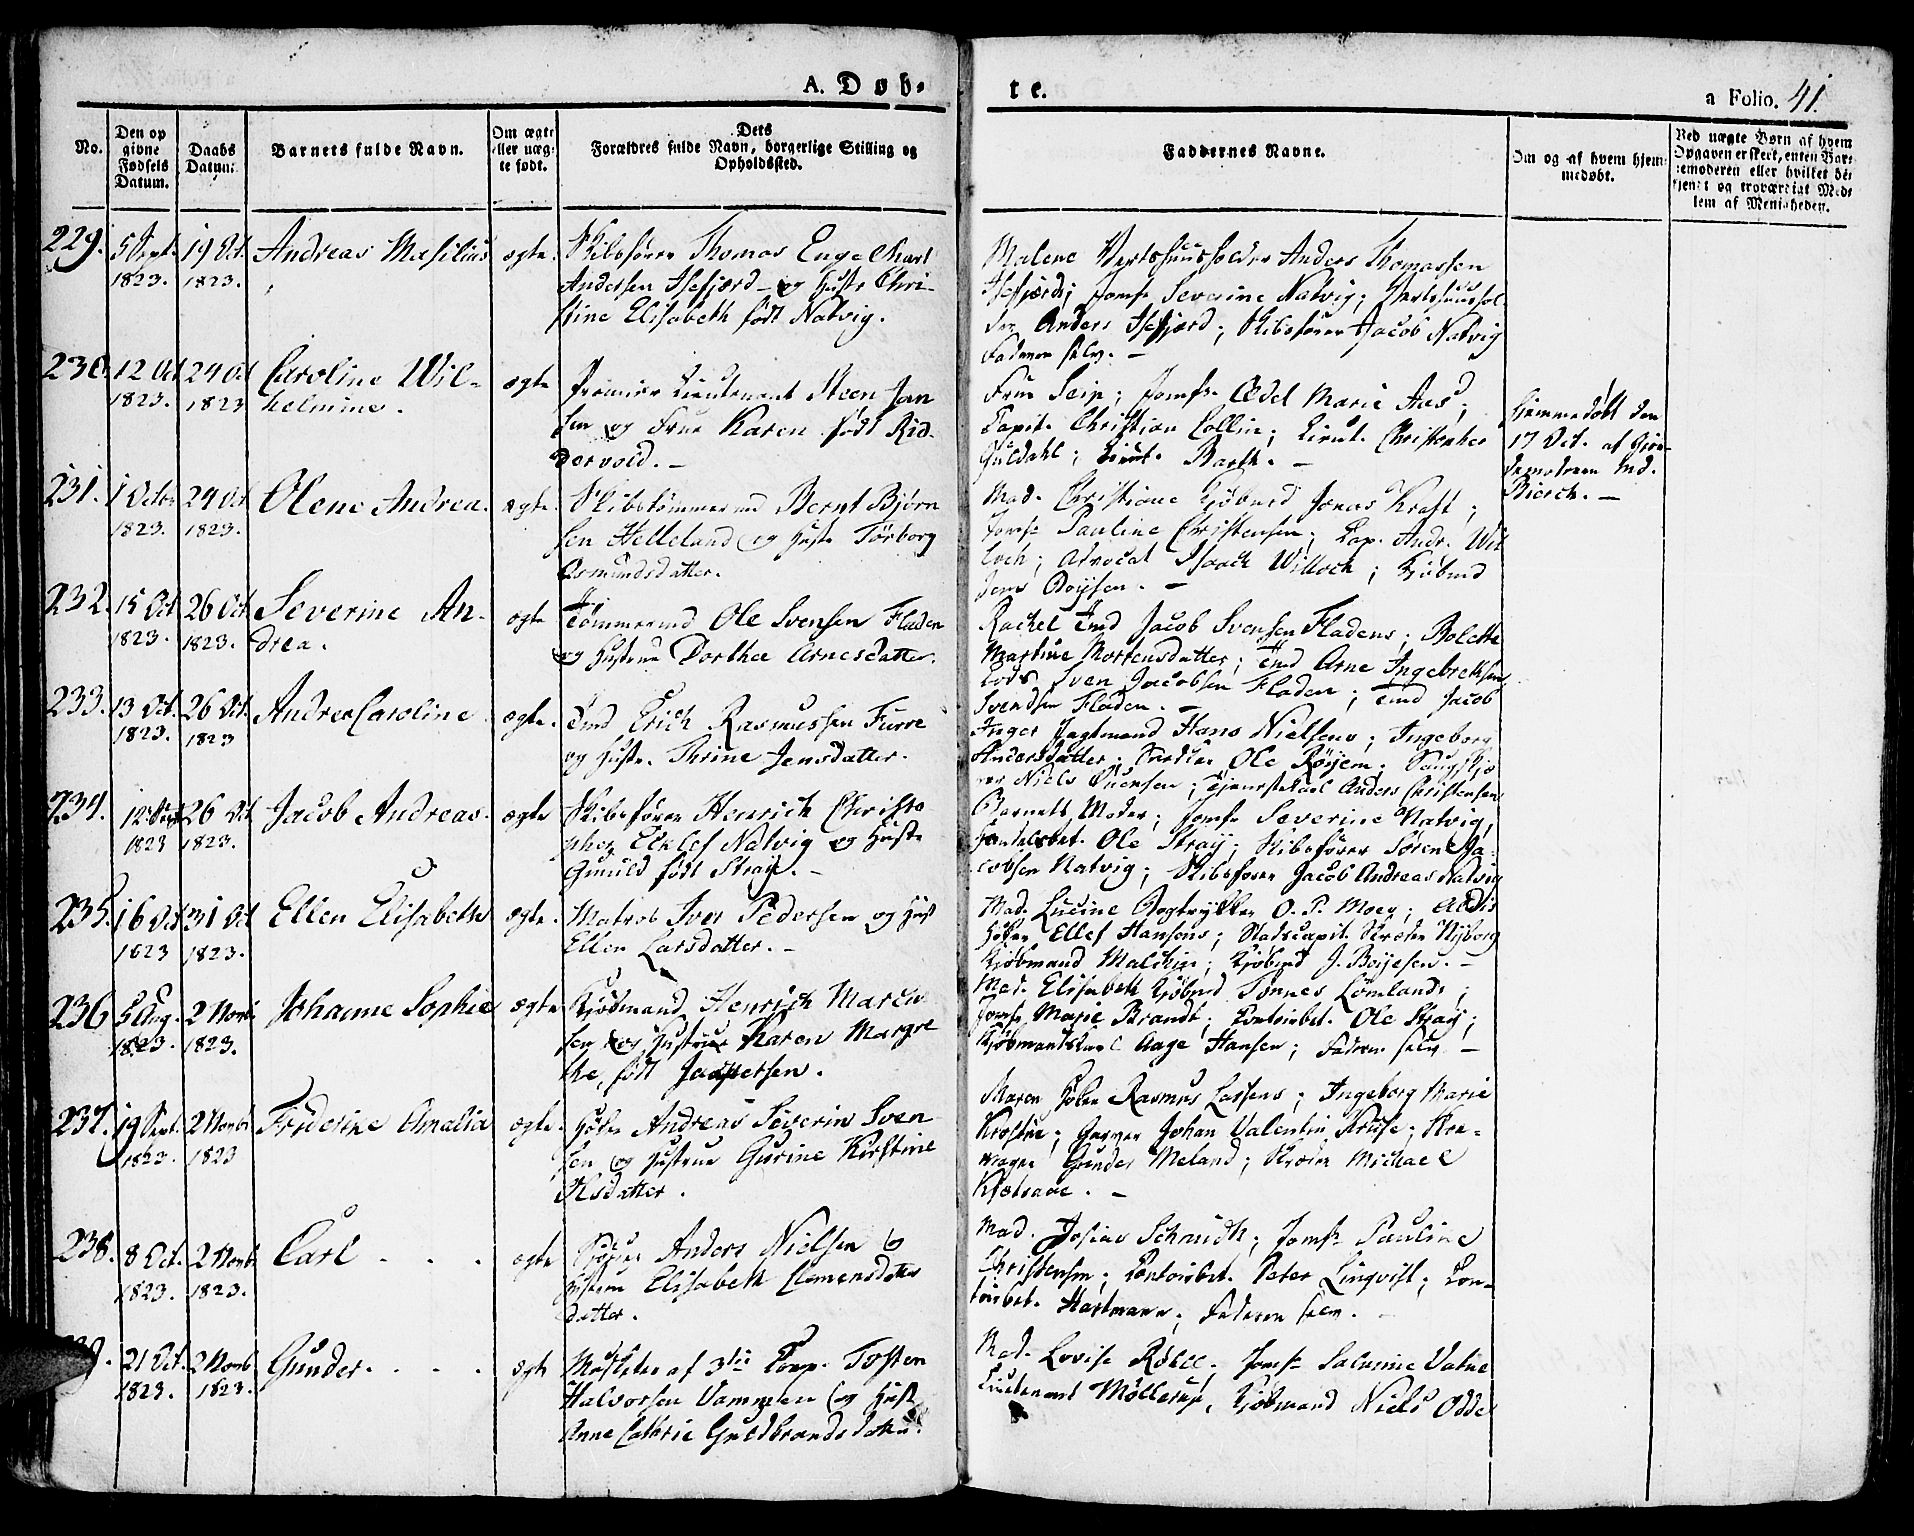 A. Døb-
te.
a Folio. 41.
No.
Den opgivne Fødsels Datum.
Daabs Datum.
Barnets fulde Navn.
Om ægte eller uægte født.
Dets Forældres fulde Navn, borgerlige Stilling og Opholdssted.
Faddernes Navne.
Om og af hvem hjemmedøbt.
Ved uægte Børn af hvem Opgaven er skeet, enten Barnemoderen eller hvilket bekjendt og troværdigt Medlem af Menigheden.
229. 5 Sept. 1823. 19 Oct. 1823. Andreas Masilius ægte.
Skibsfører Thomas Engelhart
Andersen Isefjærd og Hustr. Chri-
stine Elisabeth født Natvig.
Malene Vertshuusholder Anders Thomassen
Isefjærds; Jomfr. Severine Natvig; Vertshuushol-
der Anders Isefjærd; Skibsfører Jacob Natvig
Faderen selv. —
230. 12 Oct 1823. 24 Oct 1823 Caroline Wil-
helmine. ægte
Premier Lieutenant Steen Jan
sen og Frue Karen født Rid-
dervold. —
Frue Seip; Jomfr. Ædel Marie Aas;
Capit. Christian Collin; Lieut. Christopher
Guldahl; Lieut. Barth. —
hjemmedøbt den
17 Oct. af Gjor-
demoderen Md.
Biørck. —
231. 1 Octor 1823. 24 Oct 1823. Olene Andrea. ægte.
Skibstømmermd Bernt Bjørn
sen Helleland og Hustr Tørborg
Osmundsdatter.
Mad. Christiane Kjøbmd Jonas Kraft;
Jomfr Pauline Christensen; Cap. Andr. Wil
loch; Advocat Isaach Willoch; Kjøbmd
Jens Boysen. —
232. 15 Oct 1823. 26 Oct. 1823. Severine An-
drea. ægte
Tømmermd Ole Svensen Fladen
og Hustrue Dorthe Arnesdatter.
Rachel Tmd Jacob Svensen Fladens; Bolette
Martine Mortensdatter; Tmd Arne Ingebrektsen
Lods Sven Jacobsen Fladen; Tmd Jacob
Svendsen Fladen. —
233. 13 Oct. 1823. 26 Oct. 1823 Andrea Caroline. ægte.
Tmd Erich Rasmussen Furre
og Hustr. Thrine Jensdatter.
Inger Jagtmand Hans Nielsens; Ingeborg
Andersdatter; Ole Röyem;
Niels; Tjenestekarl Anders Christensen
234. 12 Sept 1823 26 Oct 1823. Jacob Andreas. ægte
Skibsfører Henrich Christo
pher Ellef Natvig og Hustr
Gunild født Stray. —
Barnets Moder; Jomfr Severine Natvig,
Handelsbet. Ole Stray; Skibsfører Sören Ja-
cobsen Natvig; Skibsfører Jacob Andreas Natvig
235. 16 Oct 1823 31 Oct 1823. Ellen Elisabeth ægte.
Matros Iver Pedersen og Hust
Ellen Larsdatter. —
Mad. Lucine Bogtrykker O. P. Moe;
Høker Ellef Hansens; Stadscapit. Skræder Nyborg
Kjøbmand Malching; Kjøbmd J. Boyesen. —
236 5 Aug. 1823. 2 Novbr 1823. Johanne Sophie ægte
Kjøbmand Henrich Marcu
sen og Hustrue Karen Margre
the, født Jaspersen.
Mad. Elisabeth Kjøbmd Tønnes Lömlands;
Jomfr Marie Brandt; Contoirbet. Ole Stray;
Kjøbmandskarl Aage Hansen; Faderen selv. —
237. 19 Sept. 1823. 2 Novbr 1823 Friderike Amalia ægte.
Høker Andreas Severin Sven
sen og Hustrue Gurine Kirstine
Olsdatter.
Maren Høker Rasmus Lassens; Ingeborg Marie
; Garver Johan Valentin Kruse;
Gunder Meland; Skræder Michael
Kjetsaae. —
238. 8 Oct. 1823. 2 Novbr 1823. Carl . . . ægte
Anders Nielsen og
Hustrue Elisabeth Clemensdatter
datter.
Mad. Josias Schmidt; Jomfr Pauline
Christensen; Contoirbet. Peter Linqvist; Con-
toirbet. Hartmann; Faderen selv.
21 Oct. 1823. 2 Novb 1823. Gunder. . . . ægte
af 3die Comp. Tosten
Halvorsen Vammelen og Hustr
Anne Cathrie Guldbrandsdatter.
Mad. Lovise; Jomfr Salmine Vatne
Lieutenant Möllerup, Kjøbmand Niels Odde